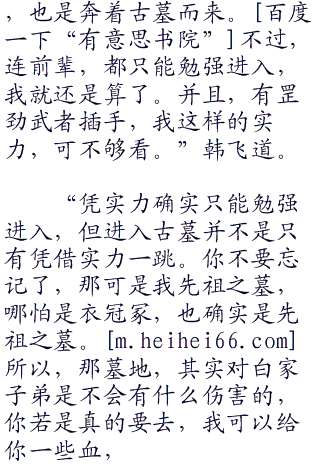 ，也是奔着古墓而来。[百度
一下“有意思书院”]不过，
连前辈，都只能勉强进入，
我就还是算了。并且，有罡
劲武者插手，我这样的实
力，可不够看。”韩飞道。
“凭实力确实只能勉强
进入，但进入古墓并不是只
有凭借实力一跳。你不要忘
记了，那可是我先祖之墓，
哪怕是衣冠冢，也确实是先
祖之墓。[m.heihei66.com]
所以，那墓地，其实对白家
子弟是不会有什么伤害的，
你若是真的要去，我可以给
你一些血，